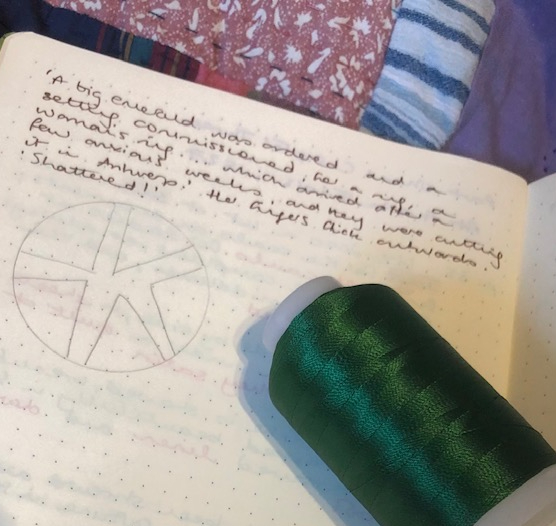 'A big emerald was ordered and a
setting commissioned for a ring, a
woman's ring ... which arrived after a
few anxious weeks, and they were cutting
it in Antwerp.' Her fingers flick outwards.
'Shattered!!'